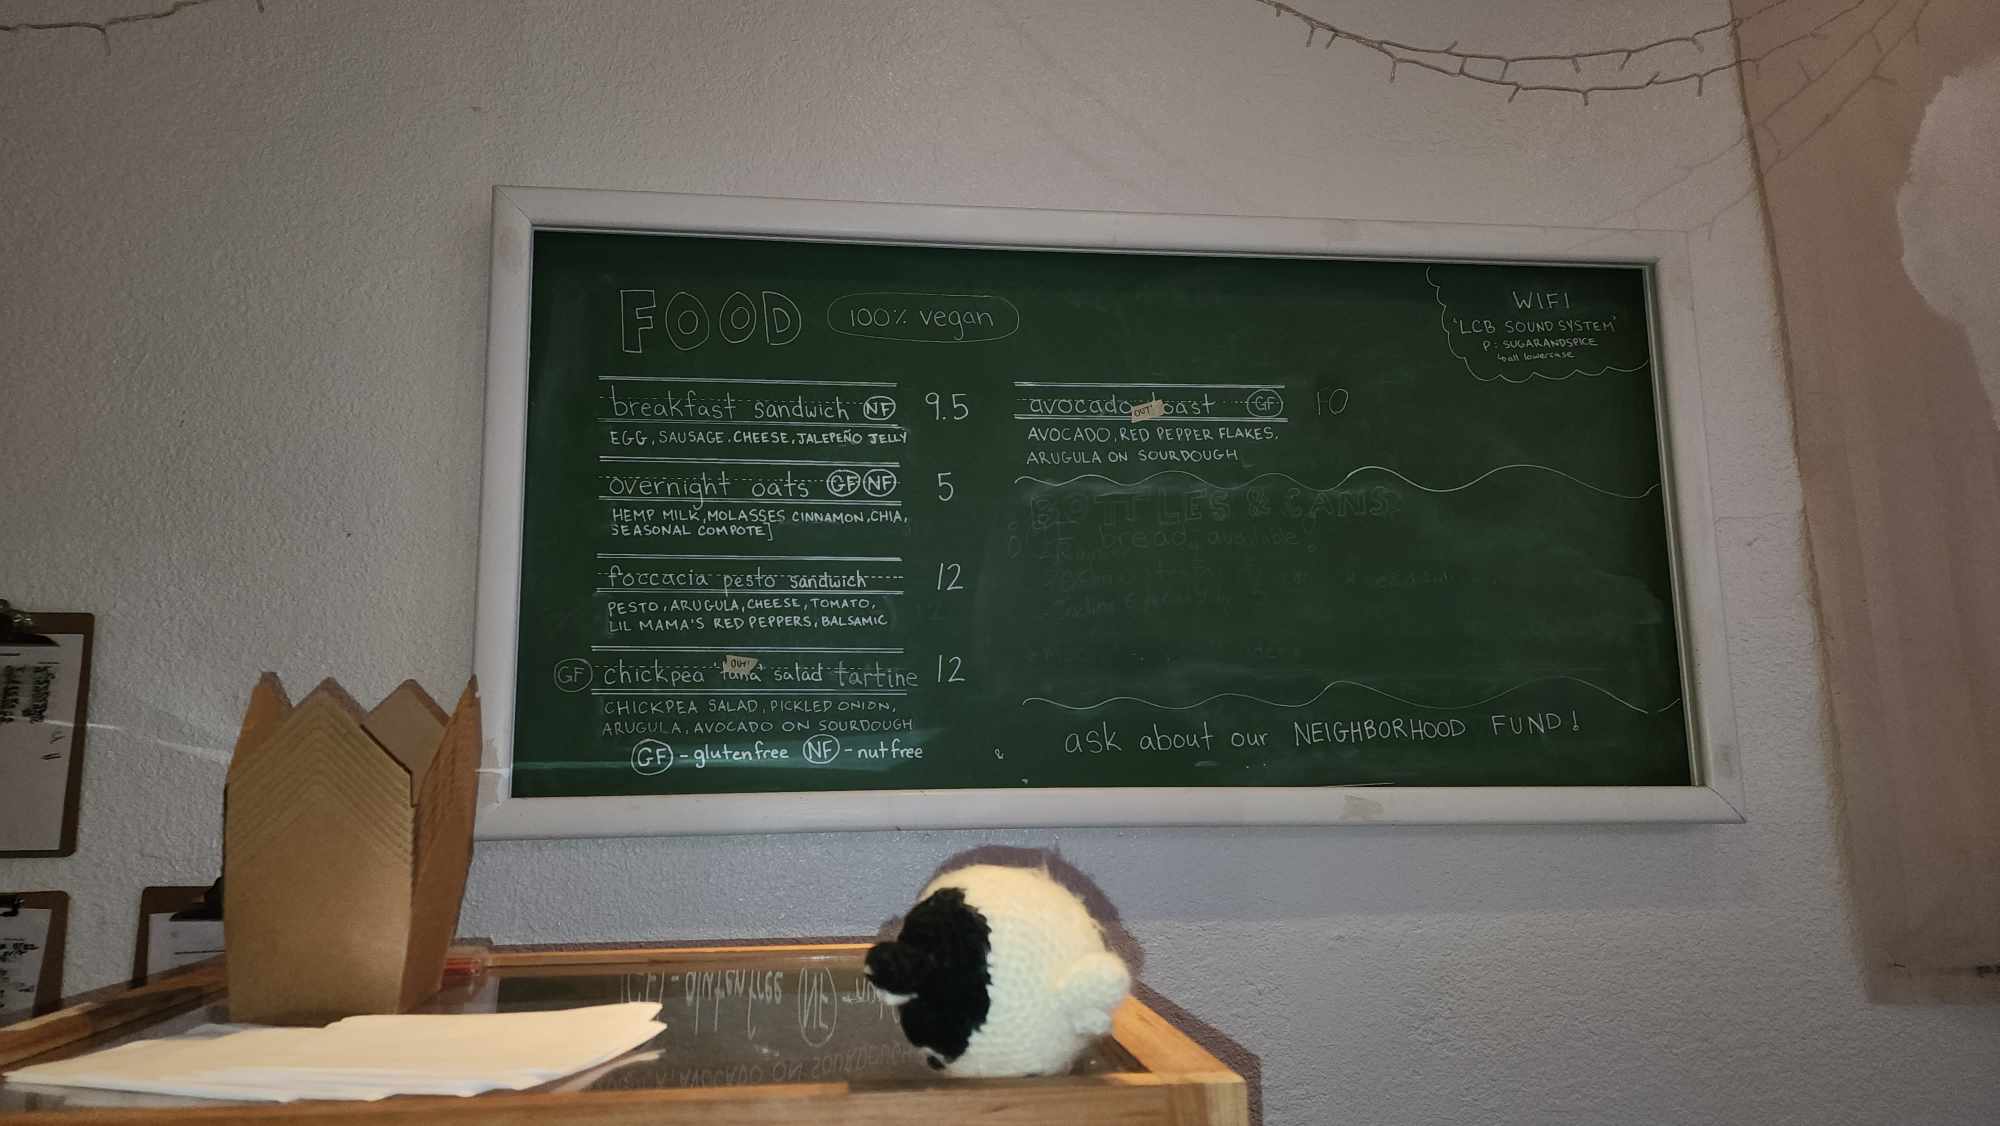 FOOD
100% vegan
breakfast sandwich NF 9.5
EGG, SAUSAGE, CHEESE, JALEPEÑO JELLY
overnight oats GF NF 5
HEMP MILK, MOLASSES CINNAMON, CHIA,
SEASONAL COMPOTE]
foccacia pesto sandwich 12
PESTO, ARUGULA, CHEESE, TOMATO,
LIL MAMA'S RED PEPPERS, BALSAMIC
GF chickpea 'tuna' salad tartine 12
OUT!
CHICKPEA SALAD, PICKLED ONION,
ARUGULA, AVOCADO ON SOURDOUGH
GF - gluten free NF - nut free
avocado toast GF 10
OUT!
AVOCADO, RED PEPPER FLAKES,
ARUGULA ON SOURDOUGH
BOTTLES & CANS
bread available!
ask about our NEIGHBORHOOD FUND!
WIFI
'LCB SOUND SYSTEM'
P: SUGARANDSPICE
all lowercase